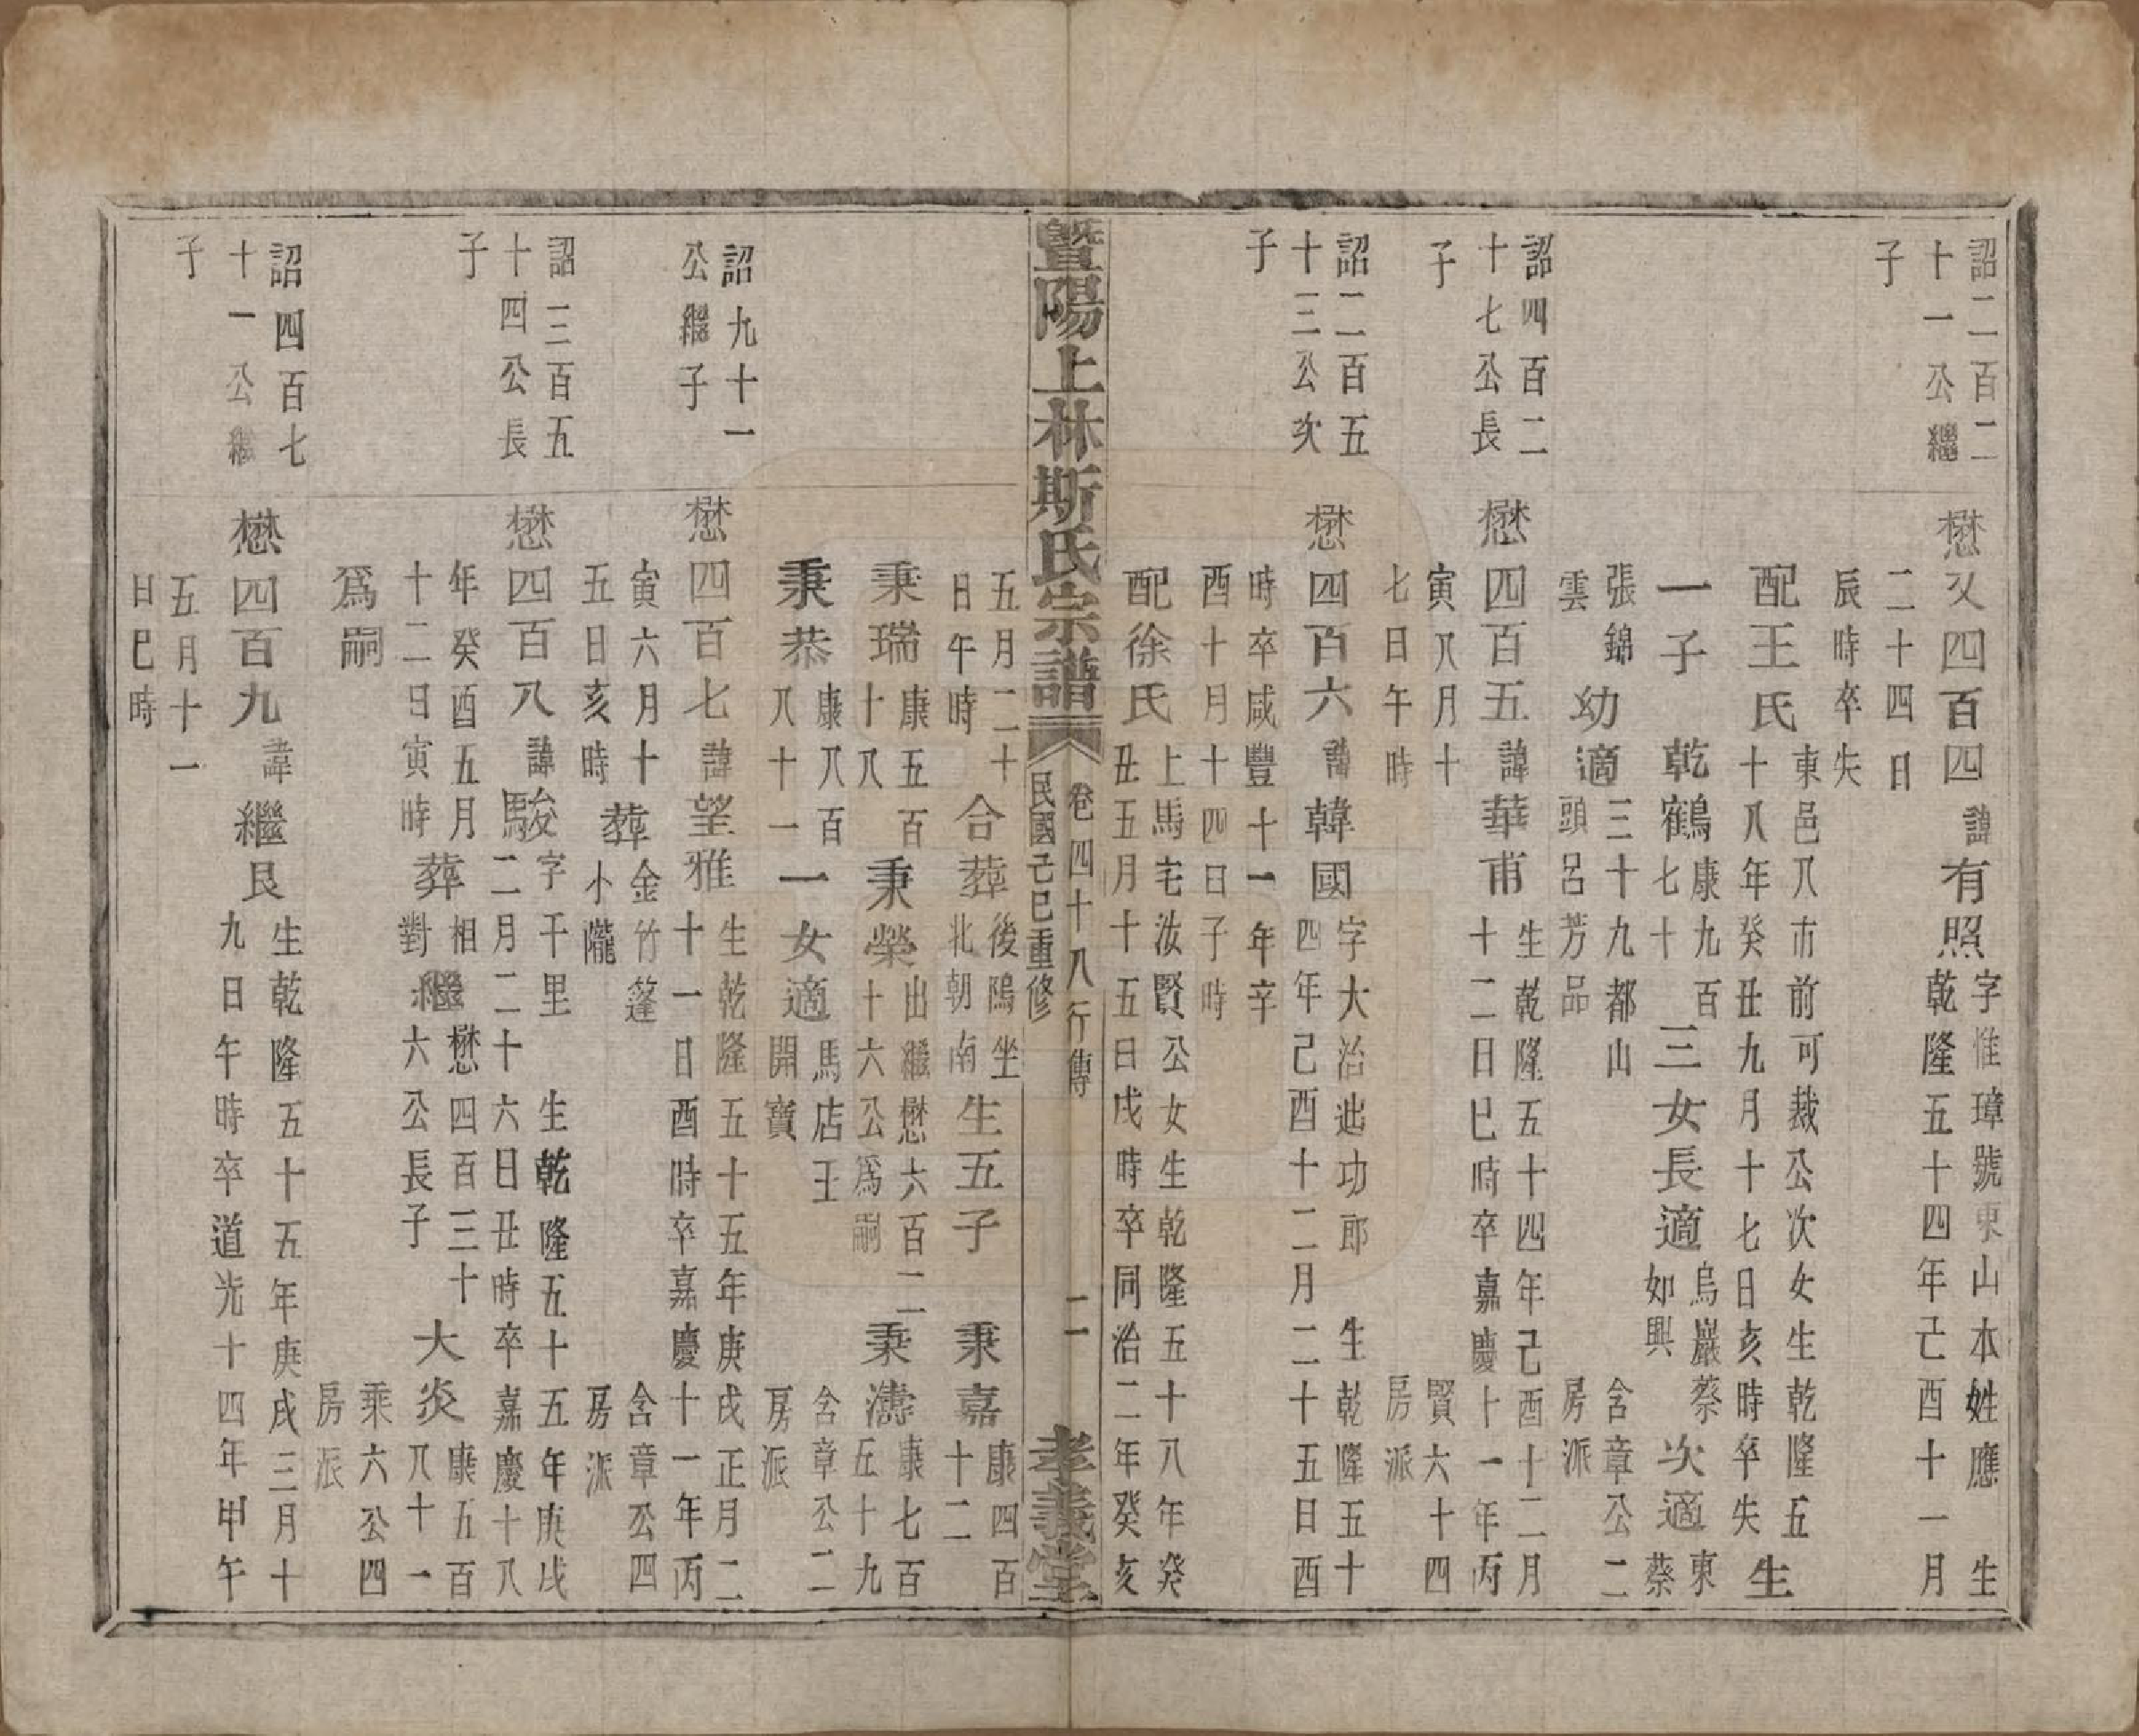 詔二百二
十一公繼
子
懋又四百四諱有照字惟璋號東山本姓應生
乾隆五十四年己酉十一月
二十四日
辰時卒失
配王氏東邑八市前可裁公次女生乾隆五
十八年癸丑九月十七日亥時卒失生
一子乾鶴康九百
七十三女長適烏巖蔡
如興次適東
蔡
張錦
雲幼適三十九都山
頭呂芳品含章公二
房派
詔四百二
十七公長
子
懋四百五諱華甫生乾隆五十四年己酉十二月
十二日巳時卒嘉慶十一年丙
寅八月十
七日午時賢六十四
房派
詔二百五
十三公次
子
懋四百六諱韓國字大治迆功郎生乾隆五十
四年己酉十二月二十五日酉
時卒咸豐十一年辛
酉十月十四日子時
配徐氏上馬宅汝賢公女生乾隆五十八年癸
丑五月十五日戌時卒同治二年癸亥
暨陽上林斯氏宗譜
卷四十八行傳
民國己巳重修
二
孝義堂
五月二十
日午時合葬後隖坐
北朝南生五子秉嘉康四百
十二
秉瑞康五百
十八秉榮出繼懋六百二
十六公爲嗣秉濤康七百
五十九
秉恭康八百
八十一一女適馬店王
開寶含章公二
房派
詔九十一
公繼子
懋四百七諱望雅生乾隆五十五年庚戌正月二
十一日酉時卒嘉慶十一年丙
寅六月十
五日亥時葬金竹篷
小隴含章公四
房派
詔三百五
十四公長
子
懋四百八諱駿字干里生乾隆五十五年庚戌
二月二十六日丑時卒嘉慶十八
年癸酉五月
十二日寅時葬相
對繼懋四百三十
六公長子大炎康五百
八十一
爲嗣乘六公四
房派
詔四百七
十一公繼
子
懋四百九諱繼艮生乾隆五十五年庚戌三月十
九日午時卒道光十四年甲午
五月十一
日巳時